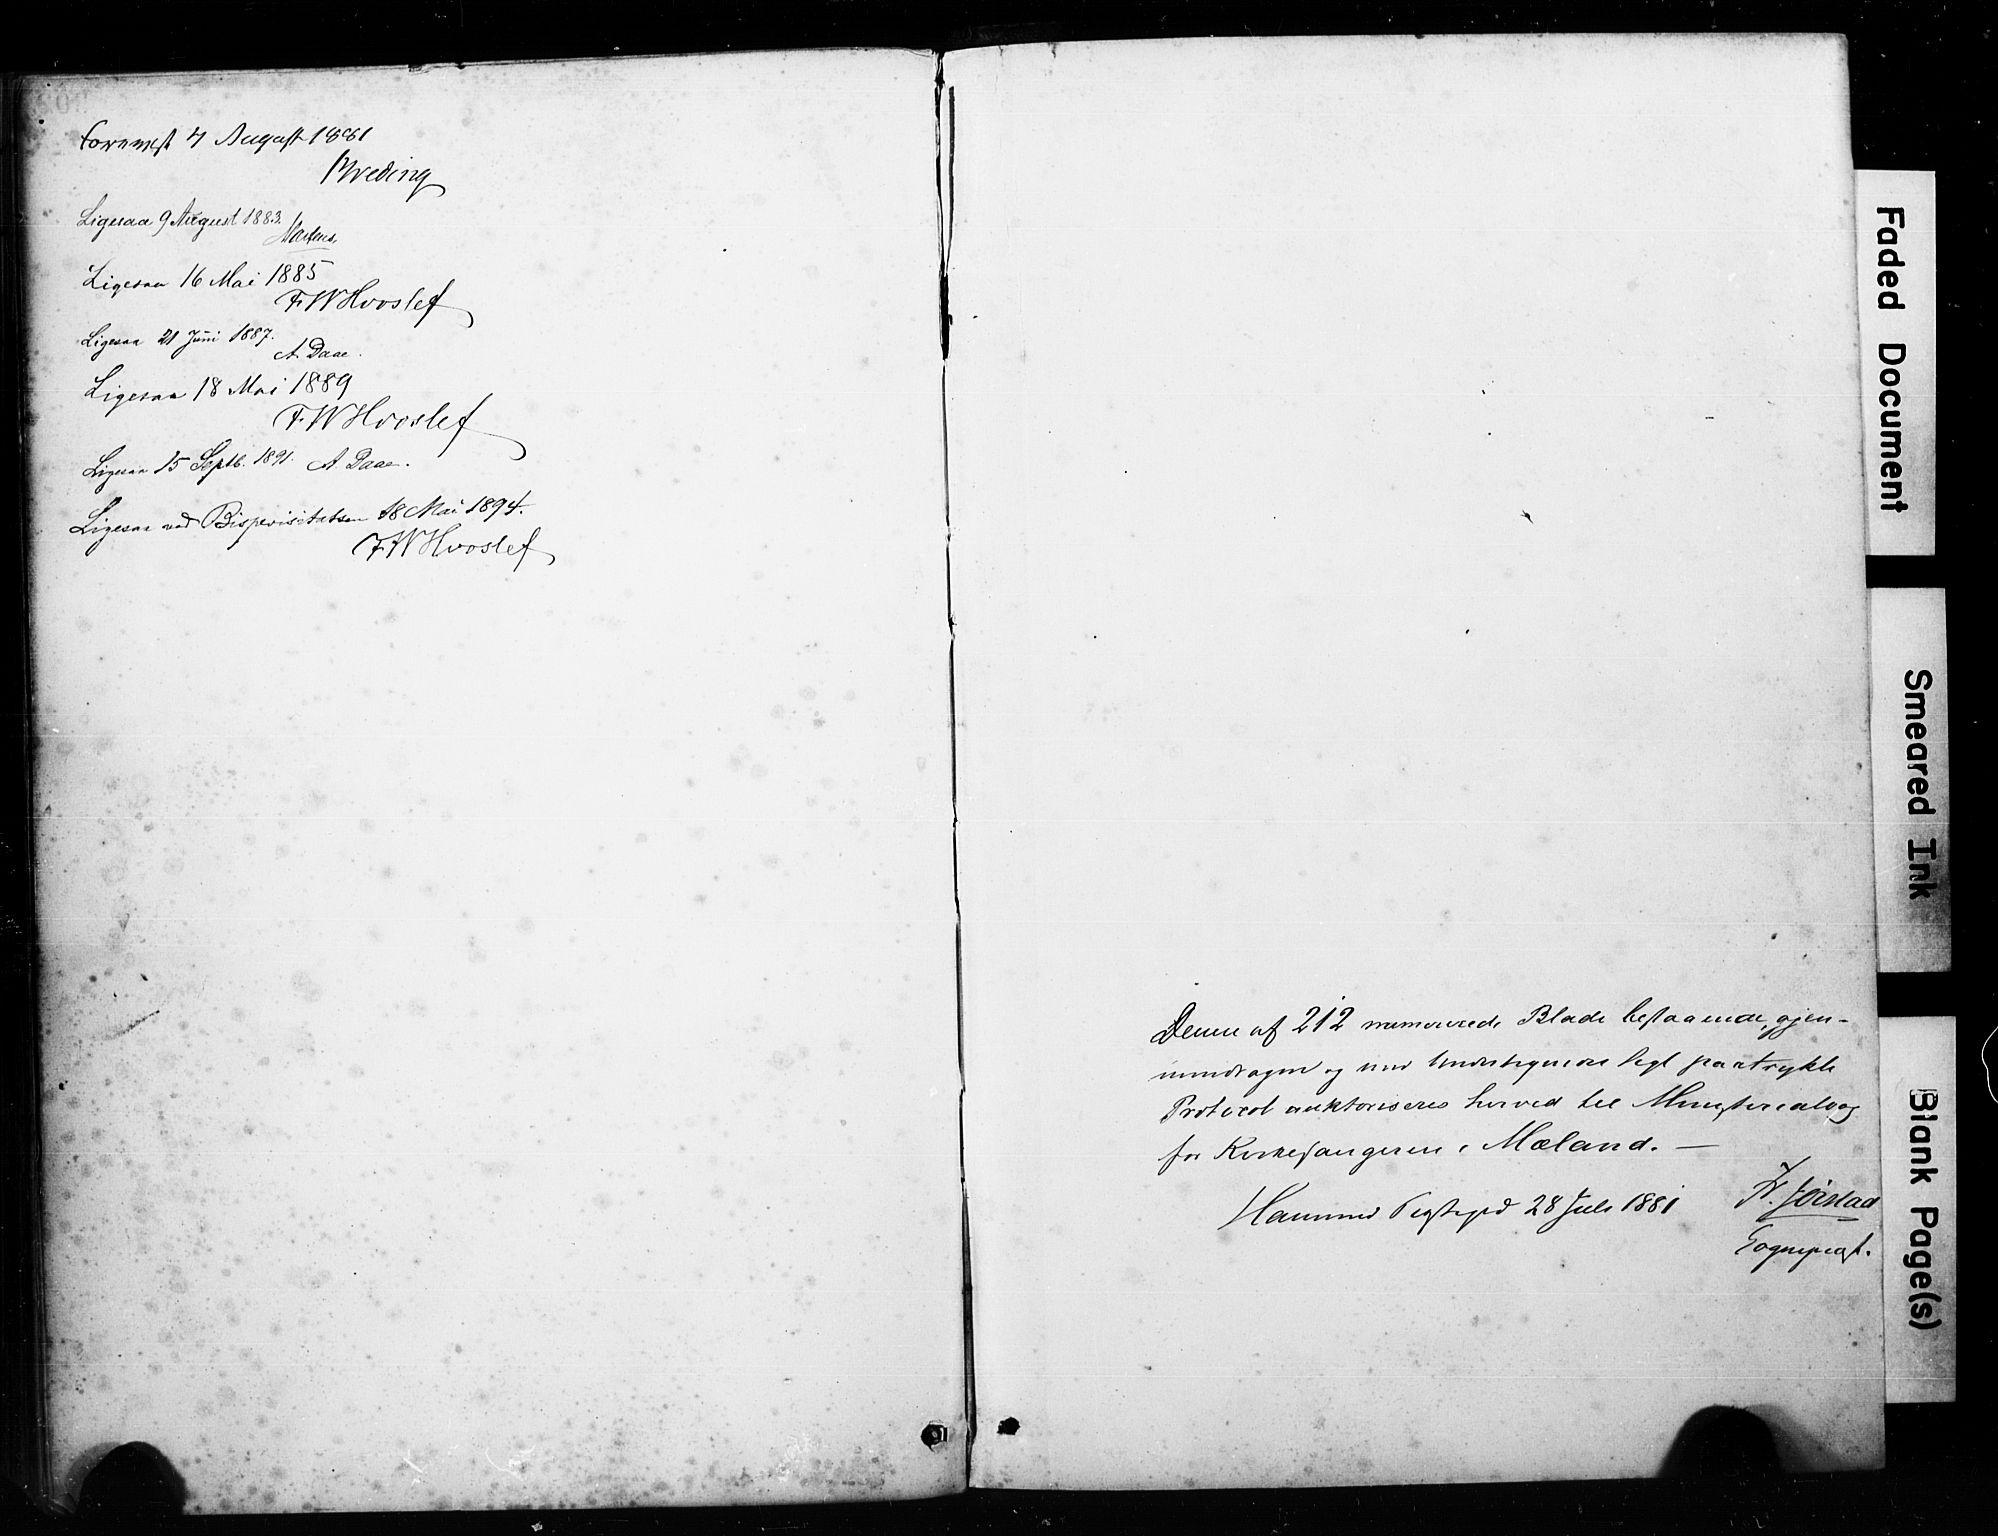 Forevist 4 August 1881
Breding
Ligesaa 9 August 1883.
Martens.
Ligesaa 16 Mai 1885
FWHvoslef
Ligesaa 21 Juni 1887.
A. Daae.
Ligesaa 18 Mai 1889
F.W Hvoslef
Ligesaa 15 Septb. 1891. A. Daae.
Ligesaa ved Bispevisitatsen 18 Mai 1894.
FWHvoslef
Denne af 212 numererede Blade bestaaende, gjen-
nemdragne og med Undertegnedes Segl paatrykte
Protocol auktoriseres herved til Ministerialbog
for Kirkesangeren i Mæland. —
Prestegjeld 28 Juli 1881
Fr. Jörstad
Sogneprest.
Faded Document
Smeared Ink
Blank Page(s)